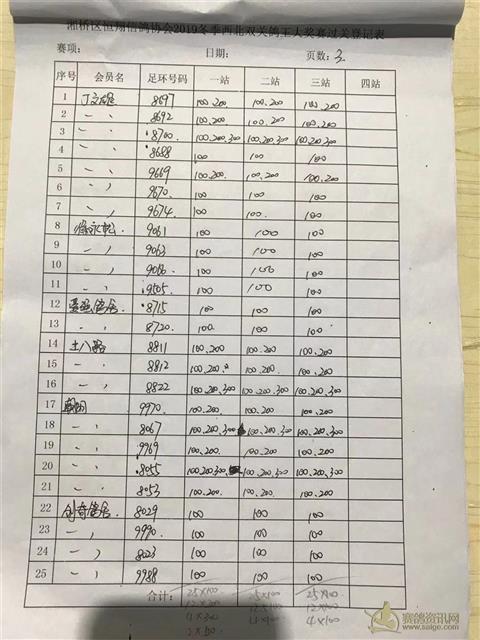 湘桥区恒翔信鸽协会2019冬季西北双关鸽王大奖赛过关登记表
赛项: 日期: 页数: 3
序号 会员名 足环号码 一站 二站 三站 四站
1 丁文雄 8697 100.200 100.200 100.200
2 〃 8692 100.200 100.200 100.200
3 〃 8700 100.200.300 100.200.300 100.200.300
4 〃 8688 100 100 100
5 〃 9669 100.200. 100.200. 100.200
6 〃 9670. 100 100 100
7 〃 9674. 100 100 100
8 9061 100 100 100
9 〃 9063 100 100 100
10 〃 9066 100 100 100
11 〃 9505 100 100 100
12 8715 100 100 100
13 〃 8720 100 100 100
14 土八路 8811 100.200 100.200 100.200
15 〃 8812 100.200. 100.200. 100.200
16 〃 8822 100.200.300 100.200.300 100.200.300
17 9970. 100.200. 100.200 100.200
18 〃 8067 100.200.300 100.200.300 100.200.300
19 〃 9969 100.200. 100.200. 100.200.
20 〃 8055 100.200.300 100.200.300 100.200.300
21 〃 8053 100.200. 100.200. 100.200.
22 创奇鸽舍 8029 100 100 100
23 〃 9990. 100 100 100
24 〃 8023 100 100 100
25 〃 9988 100 100 100
合计: 25×100 25×100
12×200
4×300
赛鸽资讯网
www.saige.com